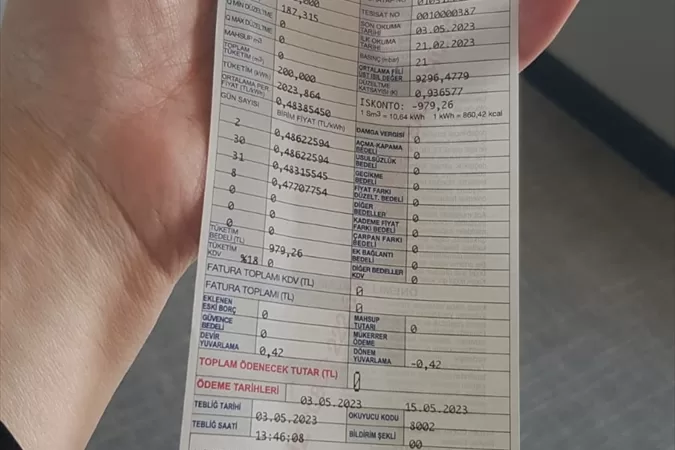 Q MİN DÜZELTME
187,315
TESİSAT NO 0010000387
Q MAX DÜZELTME 0
SON OKUMA TARİHİ 03.05.2023
MAHSUP (m3) 0
İLK OKUMA TARİHİ 21.02.2023
TOPLAM TÜKETİM (m3) 200,000
BASINÇ (mbar) 21
TÜKETİM (kWh) 2023,864
ORTALAMA FİİLİ ÜST ISIL DEĞER 9296,4779
ORTALAMA PER. FİYAT (TL/kWh) 0,48385450
DÜZELTME KATSAYISI (K) 0,936577
GÜN SAYISI BİRİM FİYAT (TL/kWh)
İSKONTO: -979,26
1 Sm3 = 10,64 kWh 1 kWh = 860,42 kcal
2 0,48622594
DAMGA VERGİSİ 0
30 0,48622594
AÇMA-KAPAMA BEDELİ 0
31 0,48315545
USULSÜZLÜK BEDELİ 0
8 0,47707754
GECİKME BEDELİ 0
0 0
FİYAT FARKI DÜZELT. BEDELİ 0
0 0
DİĞER BEDELLER 0
0 0
KADEME FİYAT FARKI BEDELİ 0
ÇARPAN FARKI BEDELİ 0
TÜKETİM BEDELİ (TL) 979,26
EK BAĞLANTI BEDELİ 0
TÜKETİM KDV %18 0
DİĞER BEDELLER KDV 0
FATURA TOPLAMI KDV (TL) 0
FATURA TOPLAMI (TL) 0
EKLENEN ESKİ BORÇ 0
MAHSUP TUTARI 0
GÜVENCE BEDELİ 0
MÜKERRER ÖDEME
DEVİR YUVARLAMA 0,42
DÖNEM YUVARLAMA -0,42
TOPLAM ÖDENECEK TUTAR (TL) 0
ÖDEME TARİHLERİ 03.05.2023 15.05.2023
TEBLİĞ TARİHİ 03.05.2023
OKUYUCU KODU 8002
TEBLİĞ SAATİ 13:46:08
BİLDİRİM ŞEKLİ 00